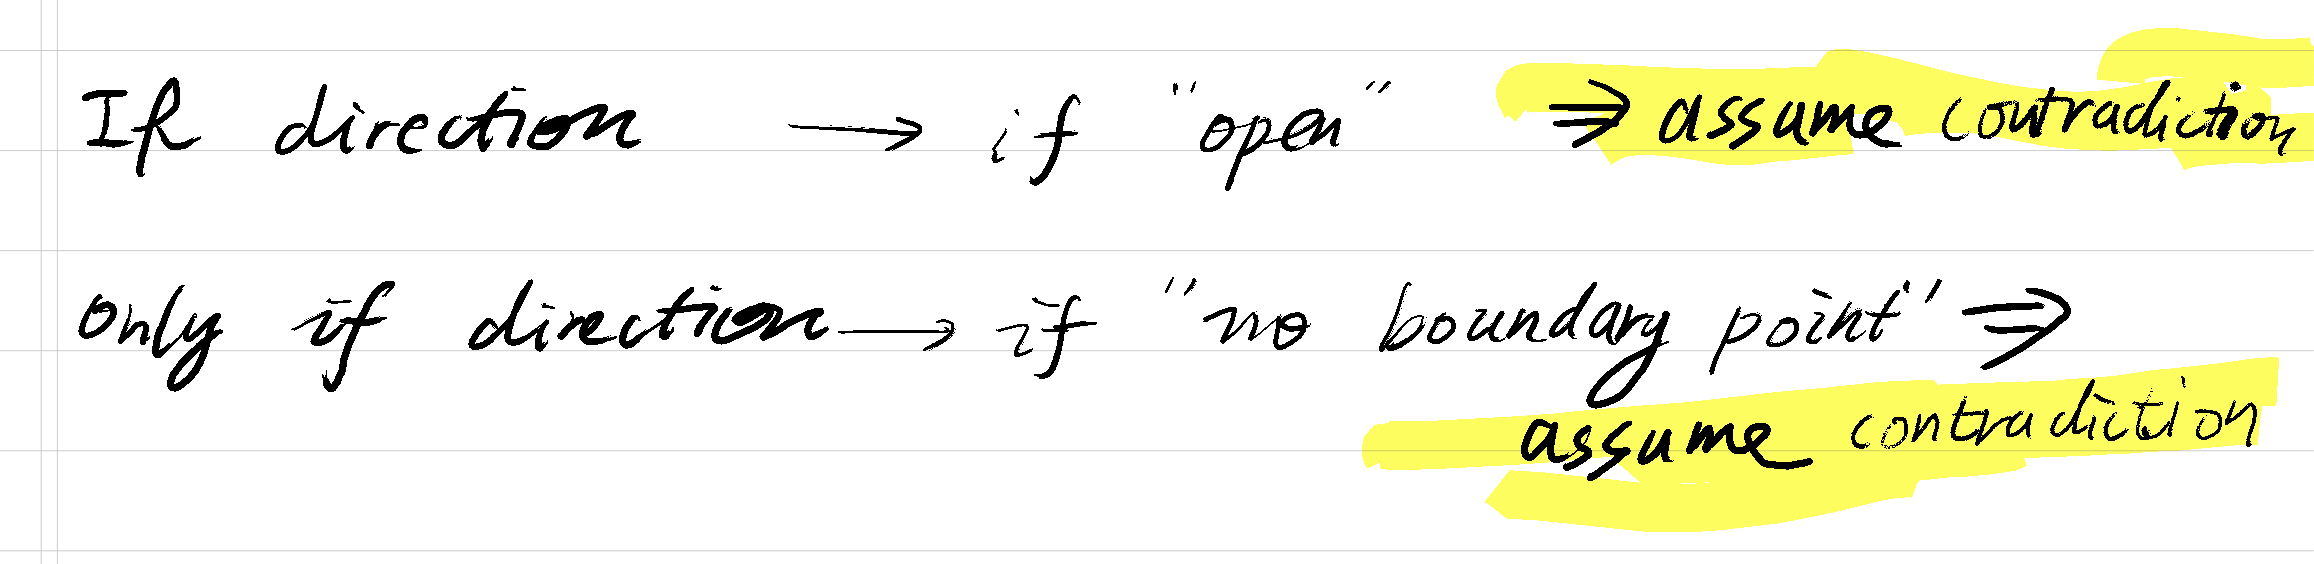 If direction → if "open" ⇒ assume contradiction
Only if direction → if "no boundary point" ⇒
assume contradiction